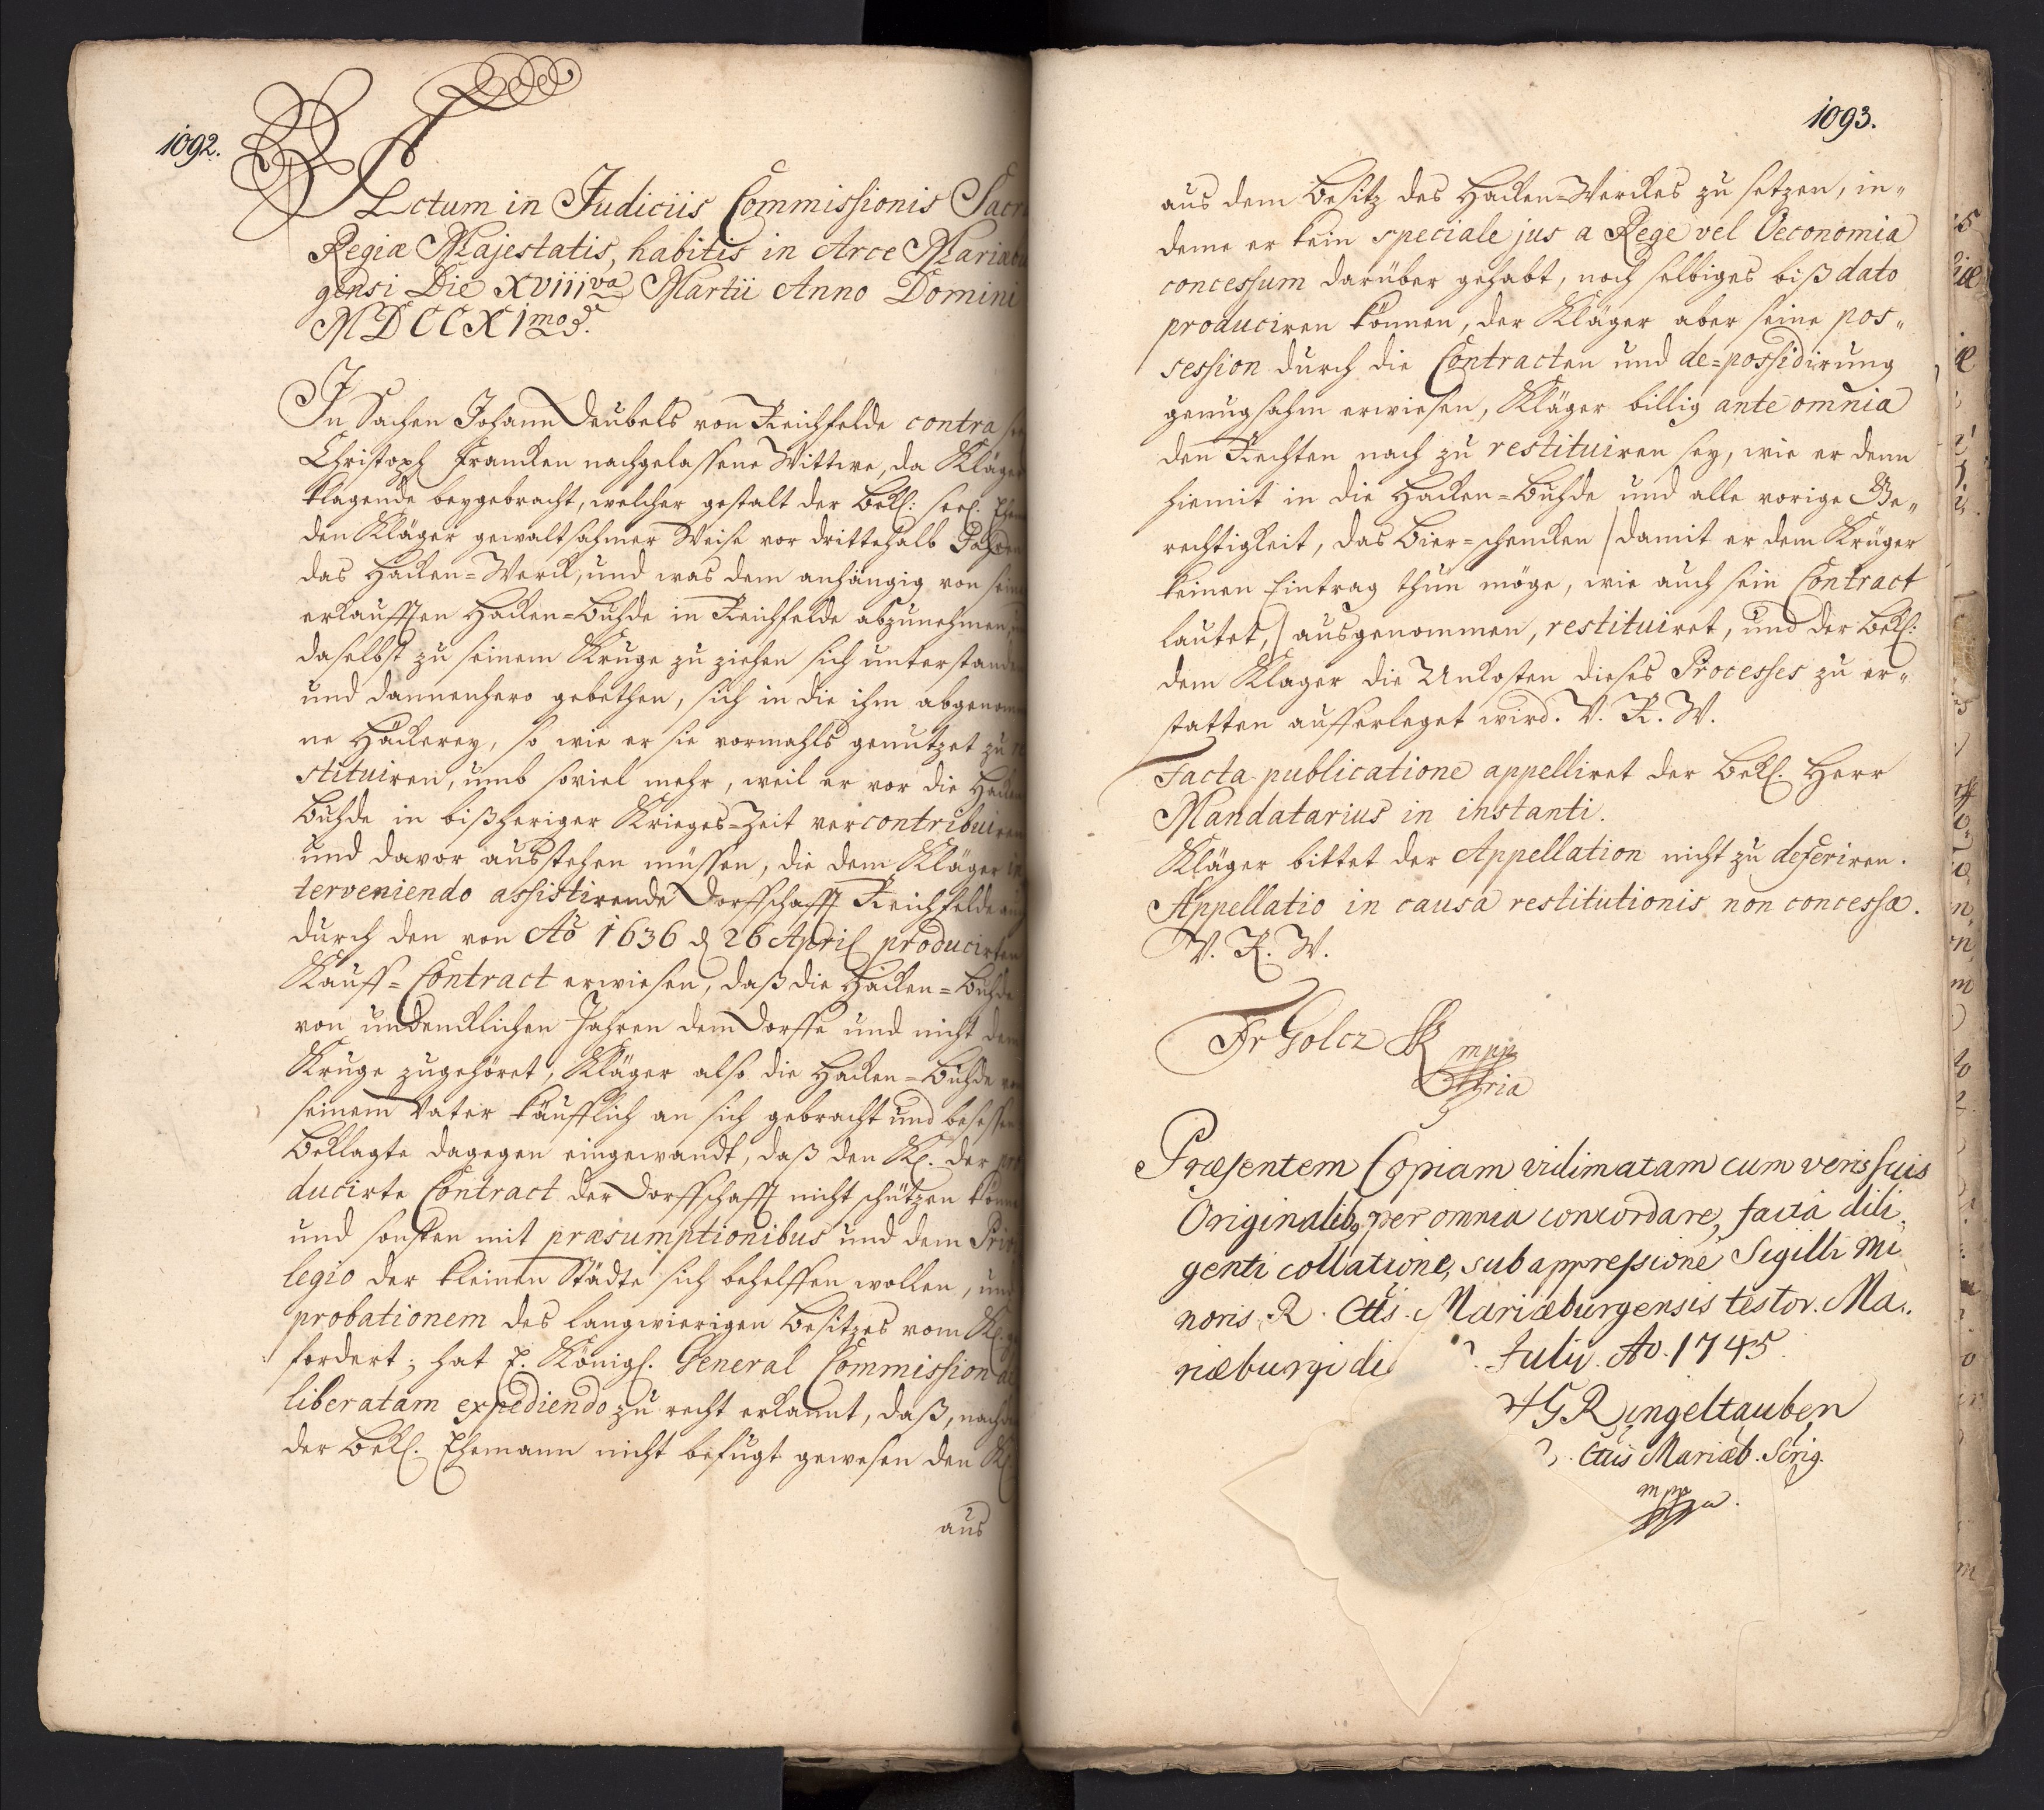 1092.
Actum in Judiciis Commissionis Sacræ
Regiæ Majestatis, habitis in Arce Mariæbur
gensi Die XVIIIva Martii Anno Domini
MDCCXImo
In Sachen Johann Deubels von Reichfelde contra seel.
Christoph Francken nachgelassene Wittwe, da Kläger
klagende beygebracht, welcher gestalt der Bekl: seel. Ehem
den Kläger gewaltsahmer Weise vor drittehalb Jahren
das Hacken=Werck, und was dem anhängig von seine
erkaufften Hacken=Buhde in Reichfelde abzunehmen,
daselbst zu seinem Kruge zu ziehen sich unterstanden
und dannenhero gebethen, sich in die ihm abgenom
ne Häckerey, so wie er sie vormahls genutzet zu re
stituiren, umb soviel mehr, weil er vor die Hacken
Buhde in bißheriger Krieges=Zeit vercontribuiren
und davor ausstehen müssen, die dem Kläger in
terveniendo assistirende Dorffschafft Reichfelde auch
durch den von Aõ 1636 d 26 April producirten
Kauff=Contract erwiesen, daß die Hacken=Buhde
von undencklichen Jahren dem Dorffe und nicht dem
Kruge zugehöret, Kläger also die Hacken=Buhde von
seinem Vater käufflich an sich gebracht und besessen
Beklagte dagegen eingewandt, daß den Kl. der pro
ducirte Contract der Dorffschafft nicht schützen könne
und sonsten mit præsumptionibus und dem Privi
legio der kleinen Städte sich behelffen wollen, und
probationem des langwierigen Besitzes vom Kl. ge
fordert; hat E. Königl. General Commission ad
liberatam expediendo zu recht erkannt, daß, nachdem
der Bekl. Ehemann nicht befugt gewesen den Kl.
aus
1093.
aus dem Besitz des Hacken=Werckes zu setzen, in„
deme er kein speciale jus a Rege vel Oeconomia
concessum darüber gehabt, noch selbiges biß dato
produciren können, der Kläger aber seine pos„
session durch die Contracten und de=possidirung
genugsahm erwiesen, Kläger billig ante omnia
den Rechten nach zu restituiren sey, wie er denn
hiemit in die Hacken=Buhde und alle vorige Ge„
rechtigkeit, das Bier=schencken / damit er dem Krüger
keinen Eintrag thun möge, wie auch sein Contract
lautet, / ausgenommen, restituiret, und der Bekl:
dem Klager die Unkosten dieses Processes zu er„
statten aufferleget wird. V. R. W.
Facta publicatione appelliret der Bekl. Herr
Mandatarius in instanti.
Kläger bittet der Appellation nicht zu deferiren.
Appellatio in causa restitutionis non concessa.
V. R. W.
Fr Golcz
mpp
ria
Præsentem Copiam vidimatam cum veris suis
Originalib9 per omnia concordare, facta dili„
genti collatione, sub appressione Sigilli Mi
noris R. Ctis. Mariæburgensis testor. Ma„
riæburgi di Julii. Ao. 1745.
HG Ringeltauben
Ctis Mariæb.
mpp